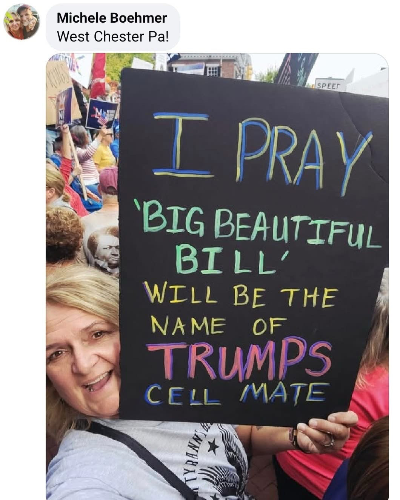 Michele Boehmer
West Chester Pa!
SPEET
I PRAY
'BIG BEAUTIFUL
BILL'
WILL BE THE
NAME OF
TRUMPS
CELL MATE
TYRANN